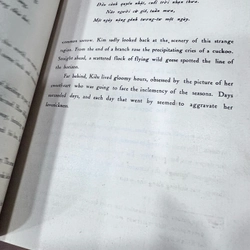 Dẫu rành quyên nhặt, cuối trời nhạn thưa.
Não người cữ gió, tuần mưa,
Một ngày nặng gánh tương-tư một ngày.
narrow. Kim sadly looked back at the scenery of this strange
region. From the end of a branch rose the precipitating cries of a cuckoo.
Straight ahead, a scattered flock of flying wild geese spotted the line of
the horizon.
Far behind, Kiều lived gloomy hours, obsessed by the picture of her
sweetheart who was going to face the inclemency of the seasons. Days
succeeded days, and each day that went by seemed to aggravate her
lovesickness.